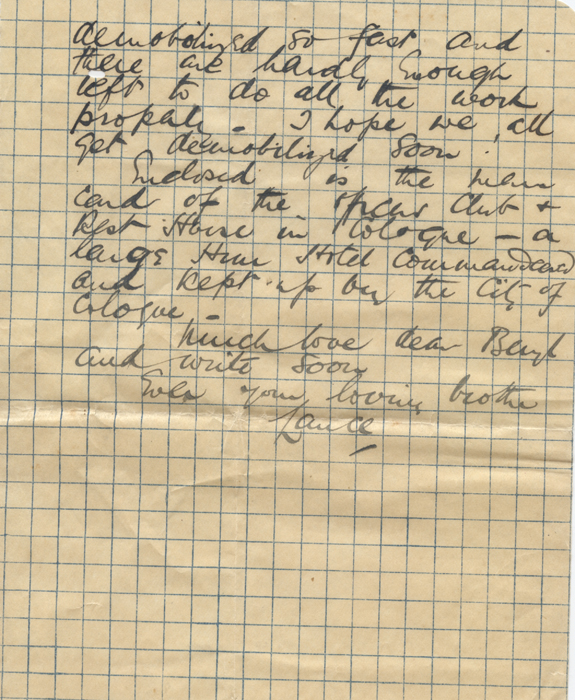 demobilized so fast and
there are hardly enough
left to do all the work
properly - I hope we all
get demobilized soon.
Enclosed is the menu
card of the Officers Club +
Rest House in Cologne - a
large Hun Hotel Commandeered
and kept up by the City of
Cologne -
Much love dear Beryl
and write soon
Ever your loving brother
Lance